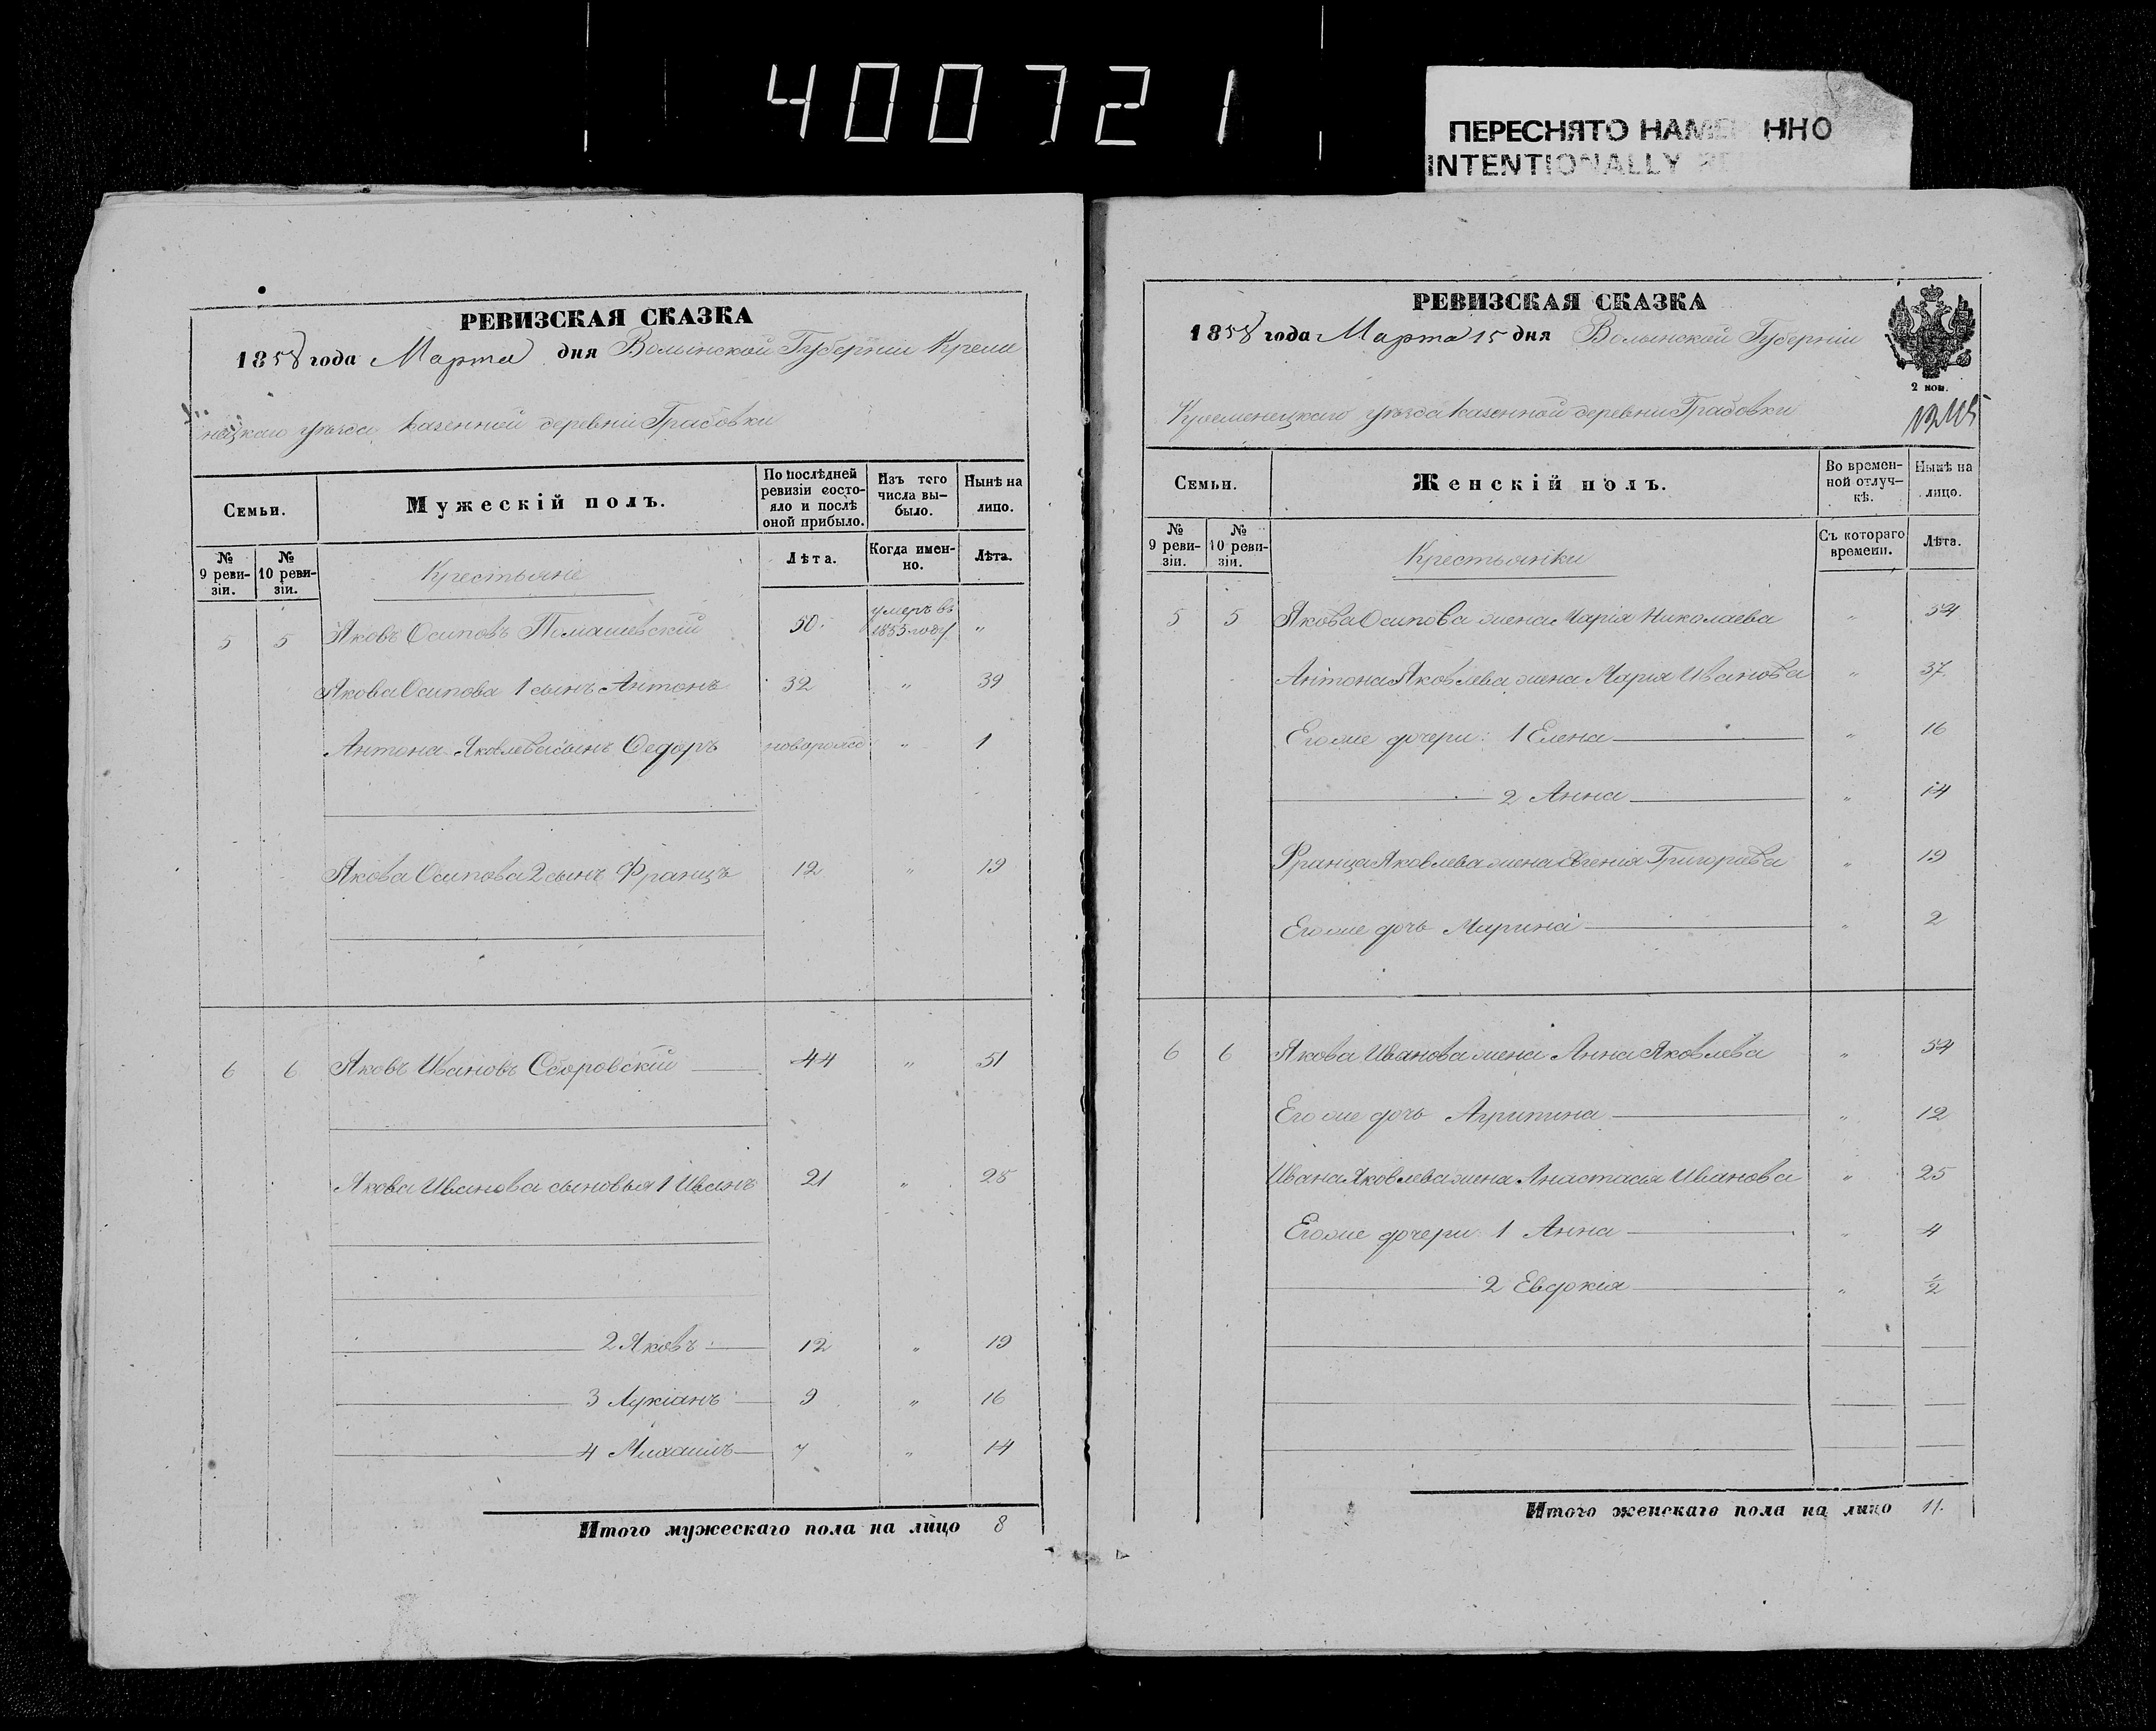 400721
ПЕРЕСНЯТО НАМЕ ННО
INTENTIONALLY
РЕВИЗСКАЯ СКАЗКА
1858 года Марта дня Волынской Губерніи Креме
нецкаго уѣзда казенной деревни Грабовки
Семьи.
Мужескій полъ.
По послѣдней ревизіи состояло и послѣ оной прибыло.
Изъ того числа выбыло.
Нынѣ на лицо.
№ 9 ревизіи.
№ 10 ревизіи.
Крестьяне
Лѣта.
Когда именно.
Лѣта.
5 5 Яковъ Осиповъ 50. умеръ въ 1855 году "
Якова Осипова 1 сынъ Антонъ 32 " 39
Антона Яковлева сынъ Ѳедоръ новорожд " 1
Якова Осипова 2 сынъ Францъ 12 " 19
6 6 Яковъ Ивановъ Сборовскій 44 " 51
Якова Иванова сыновья 1 Иванъ 21 " 28
2 Яковъ 12 " 19
3 Лукіанъ 9 " 16
4 Михаилъ 7 " 14
Итого мужескаго пола на лицо 8
РЕВИЗСКАЯ СКАЗКА
1858 года Марта 15 дня Волынской Губерніи
2 коп.
Кременецкаго уѣзда казенной деревни Грабовки
Семьи.
Женскій полъ.
Во временной отлучкѣ.
Нынѣ на лицо.
№ 9 ревизіи.
№ 10 ревизіи.
Крестьянки
Съ котораго времени.
Лѣта.
5 5 Якова Осипова жена Марія Николаева " 54
Антона Яковлева жена Марія Иванова " 37
Его же дочери: 1 Елена " 16
2 Анна " 14
Франца Яковлева жена Евгенія Григорьева " 19
Его же дочь Марина " 2
6 6 Якова Иванова жена Анна Яковлева " 54
Его же дочь Агрипина " 12
Ивана Яковлева жена Анастасія Иванова " 25
Его же дочери 1 Анна " 4
2 Евдокія " ½
Итого женскаго пола на лицо 11.